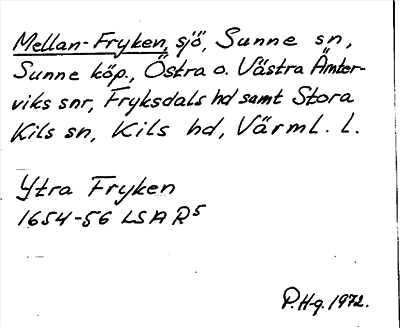 Mellan-Fryken, sjö, Sunne sn,
Sunne köp., Östra o. Västra Ämter-
viks snr, Fryksdals hd samt Stora
Kils sn, Kils hd, Värml. l.
Ytra Fryken
1654-56 LSA R5
P.H-g. 1972.